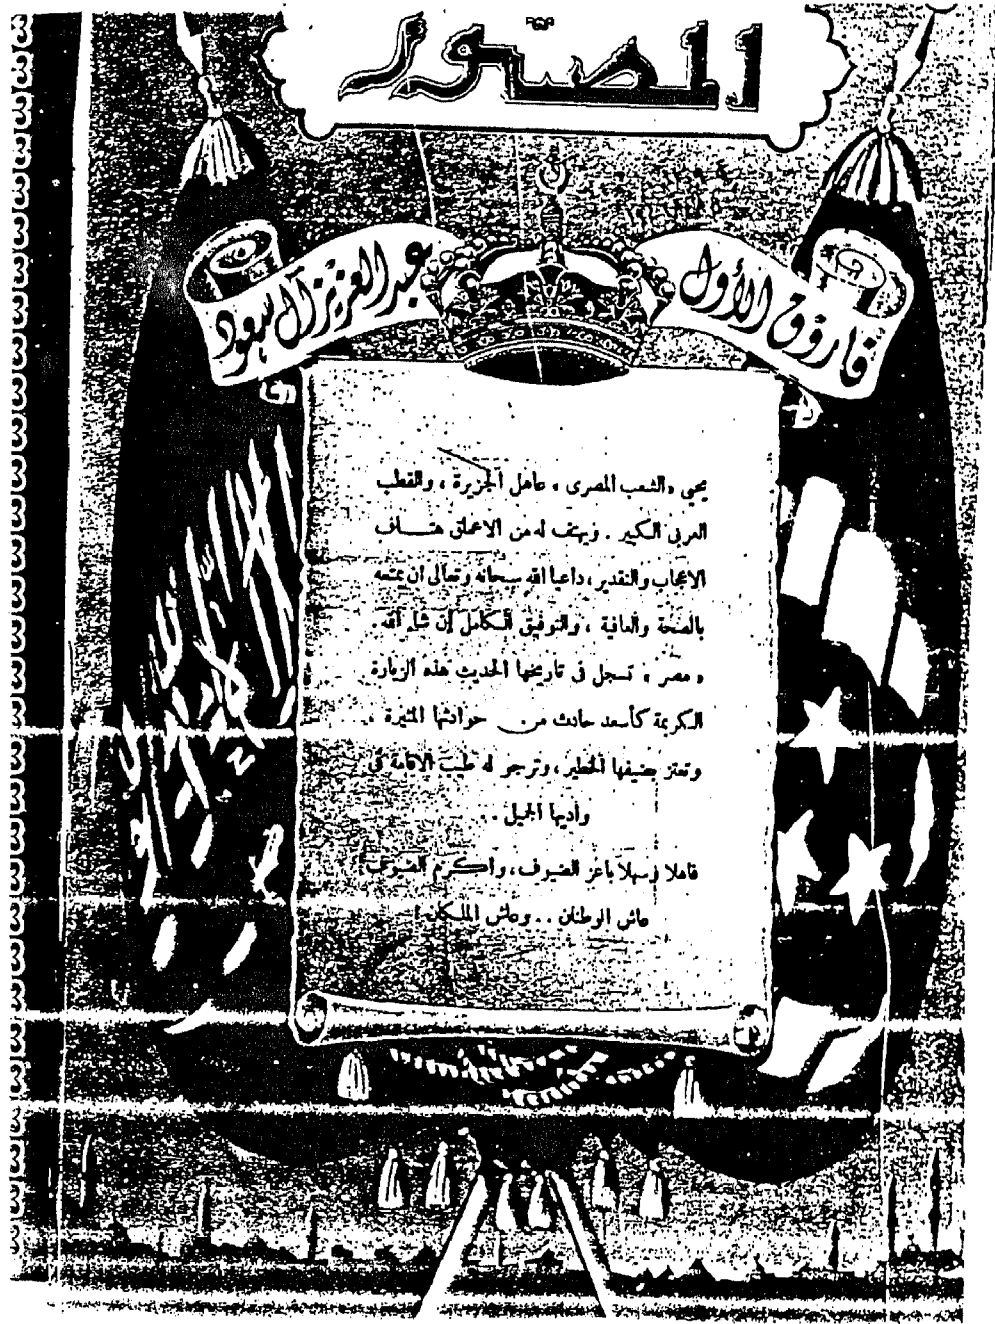 المصور
فاروق الأول
عبد العزيز آل سعود
يحيى « الشعب المصرى » عاهل الجزيرة ، والقطب
العربى الكبير . ويهتف له من الاعماق هتــاف
الاعجاب والتقدير ، داعيا الله سبحانه وتعالى أن يمتعه
بالصحة والعافية ، والتوفيق الكامل إن شاء الله .
« مصر » تسجل فى تاريخها الحديث هذه الزيارة
الكريمة كأسعد حادث من حوادثها المثيرة ،
وتعتز بضيفها الخطير ، وترجو له طيب الاقامة فى
واديها الجميل ..
فاهلا وسهلا باعز الضيوف ، واكرم الضيوف !
عاش الوطنان .. وعاش الملكان !